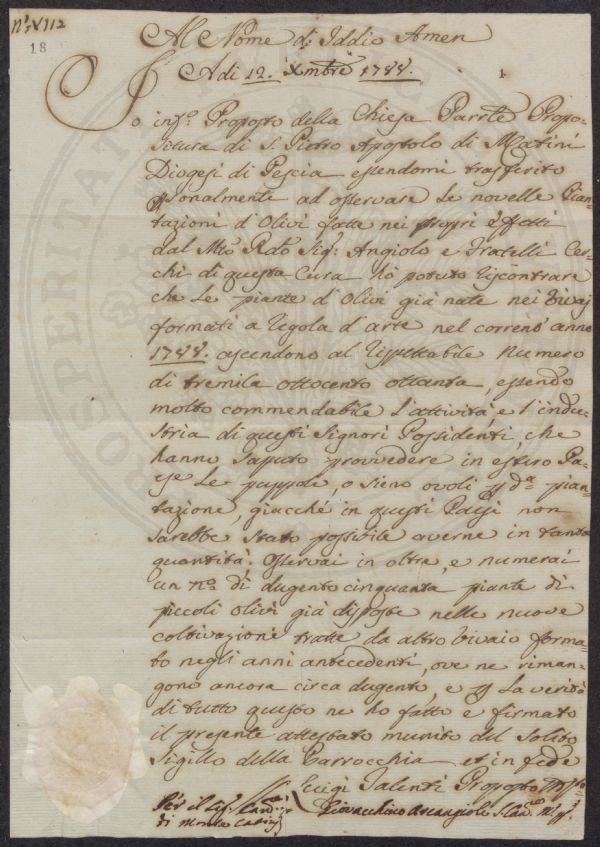 N.º XII2
18
Al Nome di Iddio Amen
Adì 12. Xmbre 1788.
1
Io inf.º Proposto della Chiesa Parrle Propo-
situra di S. Pietro Apostolo di Marini
Diogesi di Pescia essendomi trasferito
psonalmente ad osservare Le novelle Pian-
tazioni d'Olivi fatte nei proprj effetti
dal Mto Rdo Sigr. Angiolo e Fratelli Cec-
chi di questa Cura hò potuto riscontrare
che Le piante d'Olivi già nate nei Vivaj
formati a regola d'arte nel corrente anno
1788. ascendono al rispettabile numero
di tremila ottocento ottanta, essendo
molto commendabile L'attività, e l'indu-
stria di questi Signori Possidenti, che
hanno saputo provvedere in estero Pa-
ese Le puppole, o sieno ovoli p da pian-
tazione, giacchè in questi Paesi non
sarebbe stato possibile averne in tanta
quantità. Osservai in oltre, e numerai
un nº di dugento cinquanta piante di
piccoli olivi già disposte nelle nuove
coltivazioni tratte da altro vivaio forma-
to negli anni antecedenti, ove ne riman-
gono ancora circa dugento, e p La verità
di tutto questo ne ho fatto e firmato
il presente attestato munito del Solito
Sigillo della Parrocchia et in fede
Luigi Talenti Proposto
Per il Sigr Canc.re
di Monte Catini
Giovacchino Arcangioli S. Canc.re
PROSPERITATI